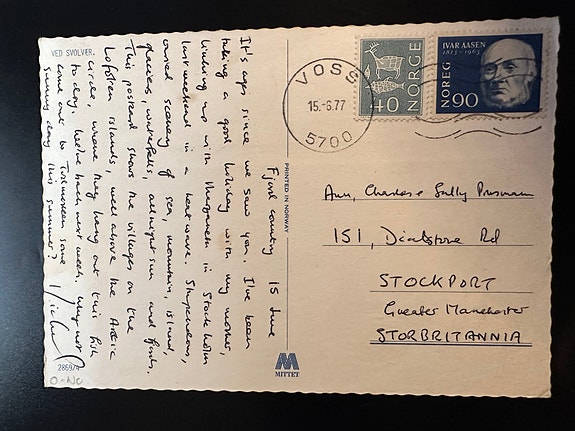 VED SVOLVÆR.
Fjord country 15 June
It's ages since we saw you. I've been
taking a good holiday with my mother,
linking up with Margareta in Stockholm
last weekend in a heat wave. Stupendous,
varied scenery of sea, mountain, island,
glaciers, waterfalls, all night sun and fjords.
This postcard shows the villages on the
Lofoten islands, well above the Arctic
circle, where they hang out this fish
to dry. We're back next week. Why not
come out to some
sunny day this summer?
286974
O-NO
PRINTED IN NORWAY
MITTET
VOSS
15.-6.77
5700
40 NORGE
IVAR AASEN
1813-1963
NOREG 90
Ann, Charles & Sally
151, Dialstone Rd
STOCKPORT
Greater Manchester
STORBRITANNIA